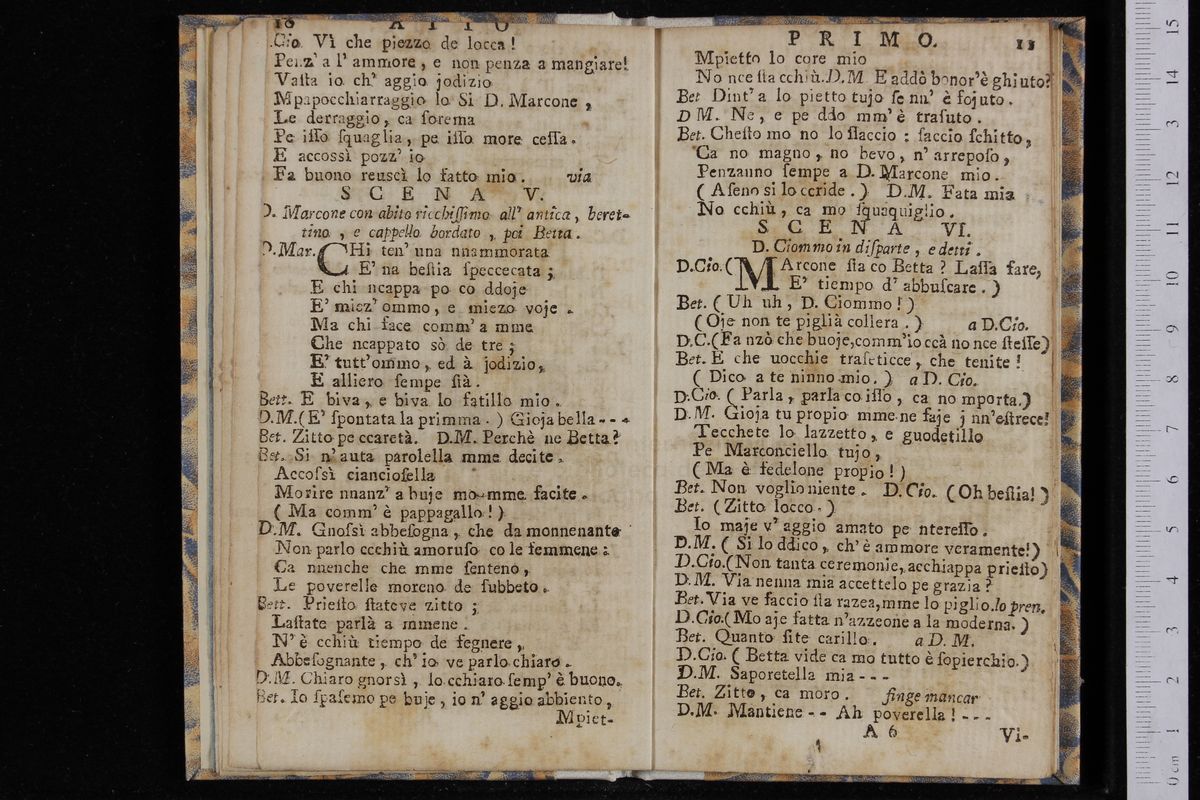 10 ATTO
.Cio. Vì che piezzo de locca!
Penz' a l' ammore, e non penza a mangiare!
Vaſta io ch' aggio jodizio
Mpapocchiarraggio lo Si D. Marcone,
Le derraggio, ca ſorema
Pe iſſo ſquaglia, pe iſſo more ceſſa.
E accossì pozz' io
Fa buono reuscì lo fatto mio. via
SCENA V.
D. Marcone con abito ricchiſſimo all' antica, beret-
tino, e cappello bordato, poi Betta.
D.Mar. CHi ten' una nnammorata
E' na beſtia ſpeccecata;
E chi ncappa po co ddoje
E' miez' ommo, e miezo voje.
Ma chi face comm' a mme
Che ncappato sò de tre;
E' tutt'ommo, ed à jodizio,
E alliero ſempe ſtà.
Bett. E biva, e biva lo fatillo mio.
D.M. (E' ſpontata la primma.) Gioja bella---
Bet. Zitto pe ccaretà. D.M. Perchè ne Betta?
Bet. Si n' auta parolella mme decite.
Accoſsì ciancioſella
Morire nnanz' a buje mo mme facite.
(Ma comm' è pappagallo!)
D.M. Gnoſsì abbeſogna, che da monnenante
Non parlo ccchiù amoruſo co le femmene:
Ca nnenche che mme ſenteno,
Le poverelle moreno de ſubbeto.
Bett. Prieſto ſtateve zitto;
Laſtate parlà a mmene.
N' è cchiù tiempo de fegnere,
Abbeſognante, ch' io ve parlo chiaro.
D.M. Chiaro gnorsì, lo cchiaro ſemp' è buono.
Bet. Io ſpaſemo pe buje, io n' aggio abbiento,
Mpiet-
PRIMO. 11
Mpietto lo core mio
No nce ſta cchiù. D.M. E addò bonor'è ghiuto?
Bet Dint' a lo pietto tujo ſe nn' è fojuto.
D M. Ne, e pe ddo mm' è traſuto.
Bet. Cheſto mo no lo ſſaccio: ſaccio ſchitto,
Ca no magno, no bevo, n' arrepoſo,
Penzanno ſempe a D. Marcone mio.
(Aſeno si lo ccride.) D.M. Fata mia
No cchiù, ca mo ſquaquiglio.
SCENA VI.
D. Ciommo in diſparte, e detti.
D.Cio. (MArcone ſta co Betta? Laſſa fare,
E' tiempo d' abbuſcare.)
Bet. (Uh uh, D. Ciommo!)
(Oje non te piglià collera.) a D.Cio.
D.C. (Fa nzò che buoje, comm'io ccà no nce ſteſſe)
Bet. E che uocchie traſeticce, che tenite!
(Dico a te ninno mio.) a D. Cio.
D.Cio. (Parla, parla co iſſo, ca no mporta.)
D.M. Gioja tu propio mme ne faje j nn'eſtrece!
Tecchete lo lazzetto, e guodetillo
Pe Marconciello tujo,
(Ma è fedelone propio!)
Bet. Non voglio niente. D.Cio. (Oh beſtia!)
Bet. (Zitto locco.)
Io maje v' aggio amato pe ntereſſo.
D.M. (Si lo ddico, ch' è ammore veramente!)
D.Cio. (Non tanta ceremonie, acchiappa prieſto)
D.M. Via nenna mia accettelo pe grazia?
Bet. Via ve faccio ſta razea, mme lo piglio. lo pren.
D.Cio. (Mo aje fatta n'azzeone a la moderna.)
Bet. Quanto ſite carillo. a D. M.
D.Cio. (Betta vide ca mo tutto è ſopierchio.)
D.M. Saporetella mia---
Bet. Zitto, ca moro. finge mancar
D.M. Mantiene-- Ah poverella!---
A 6 Vi-